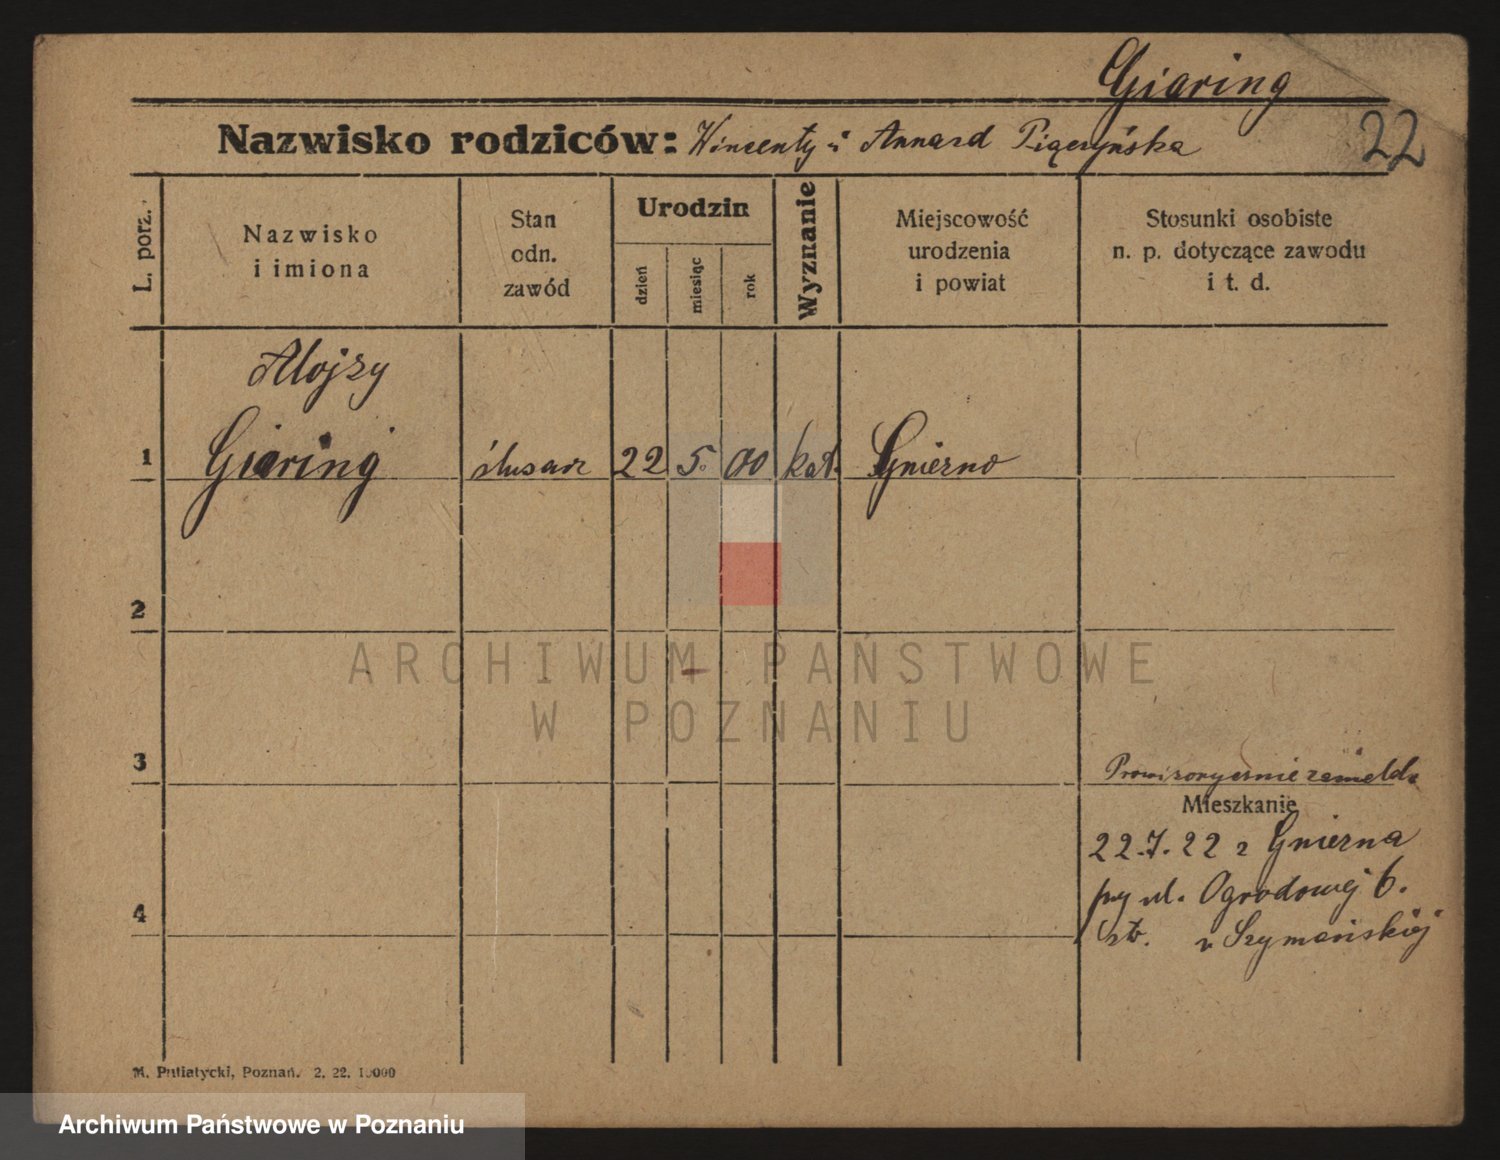 Giaring
Nazwisko rodziców: Wincenty i Anna zd Piączyńska 22
L. porz.
Nazwisko
i imiona
Stan
odn.
zawód
Urodzin
dzień
miesiąc
rok
Wyznanie
Miejscowość
urodzenia
i powiat
Stosunki osobiste
n. p. dotyczące zawodu
i t. d.
Alojzy
1 Giaring ślusarz 22 5. 00 kat. Gniezno
2
ARCHIWUM PAŃSTWOWE
W POZNANIU
3 Prowizorycznie zameld.
Mieszkanie
22.7.22 z Gniezna
przy ul. Ogrodowej 6.
4 u Szymańskiéj
M. Putiatycki, Poznań. 2. 22. 10000
Archiwum Państwowe w Poznaniu